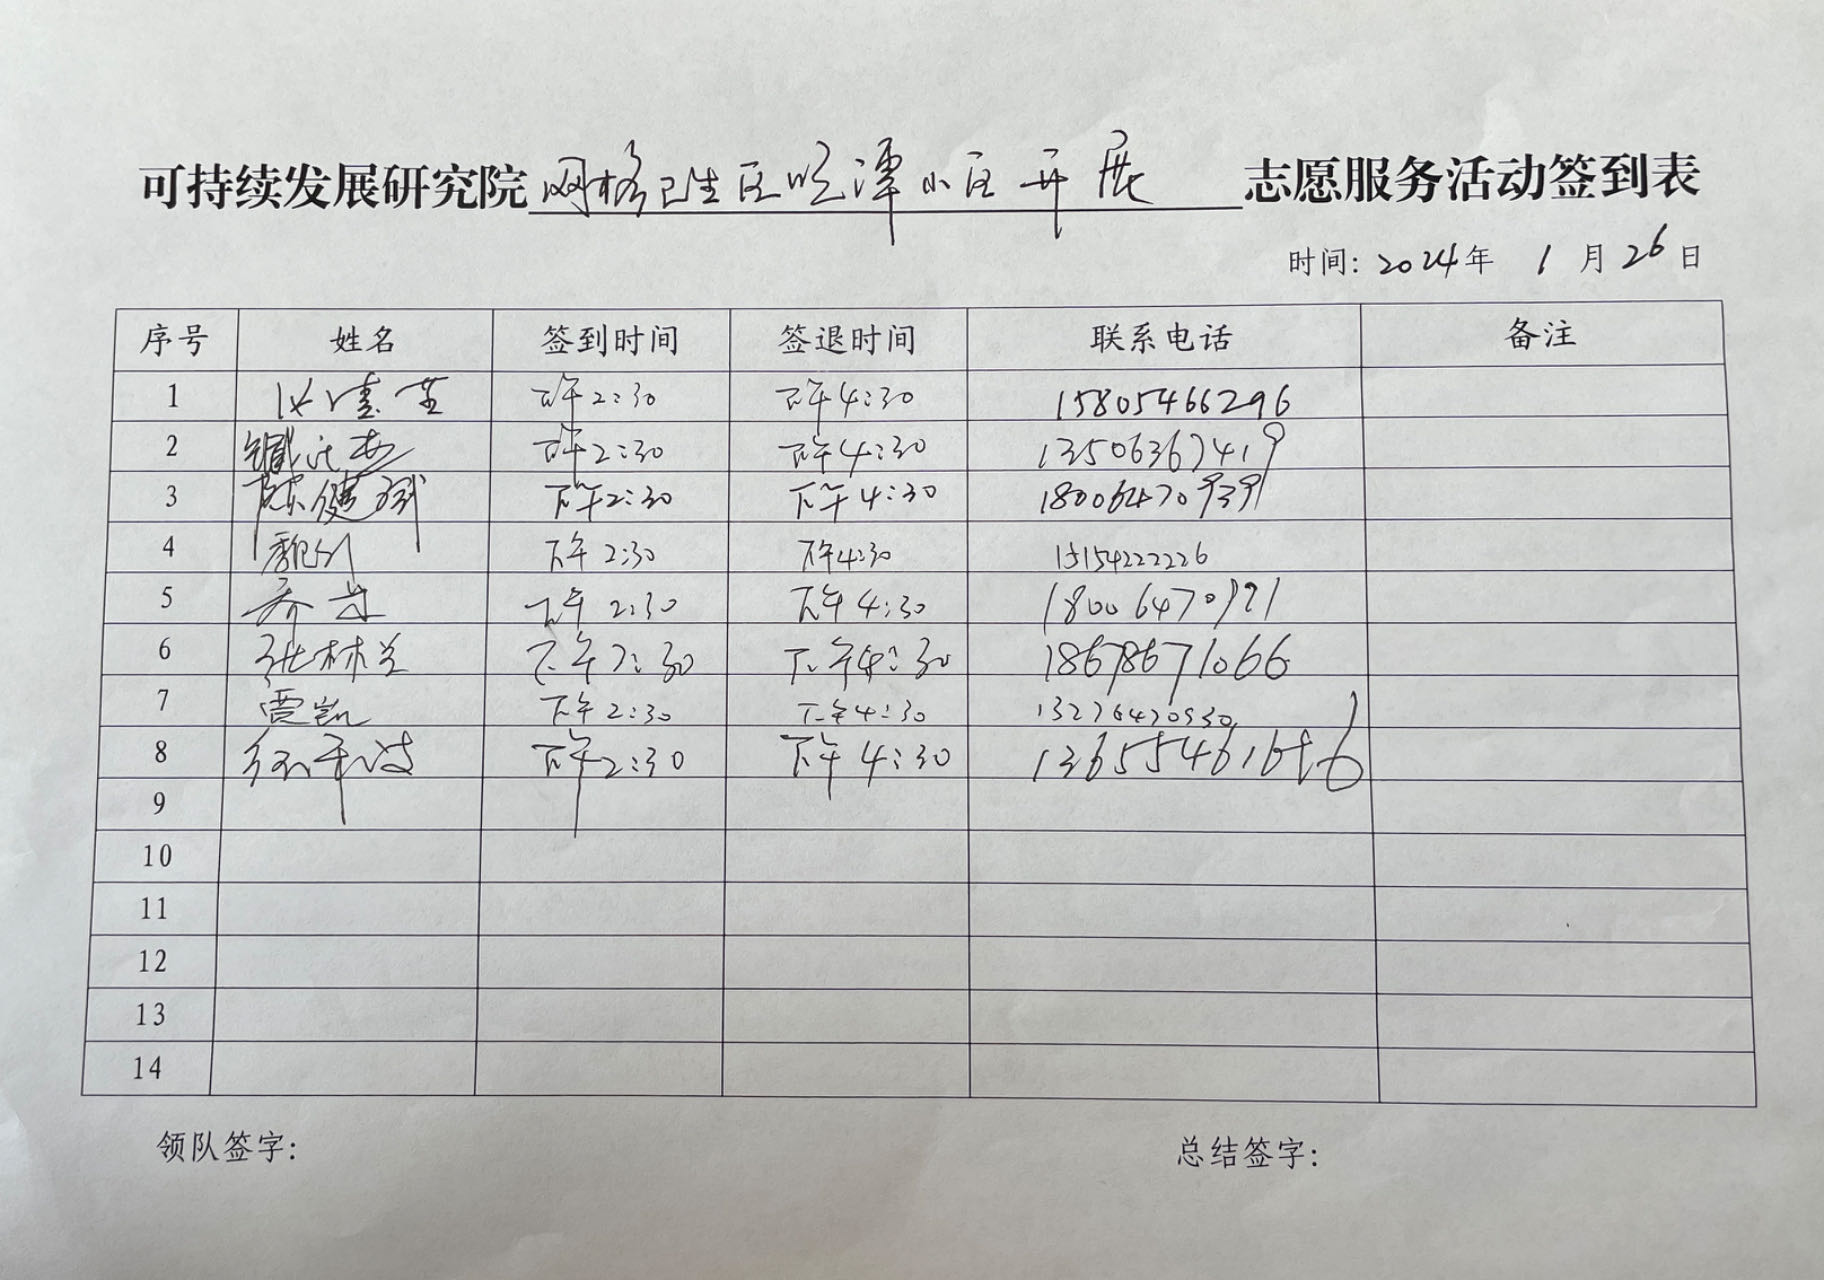 可持续发展研究院 网格卫生区 潭小区开展 志愿服务活动签到表
时间: 2024年 1月26日
序号 姓名 签到时间 签退时间 联系电话 备注
1 下午2:30 下午4:30 15805466296
2 下午2:30 下午4:30 13506367419
3 陈健斌 下午2:30 下午4:30 18006470939
4 下午2:30 下午4:30 15154222226
5 下午2:30 下午4:30
6 张林兰 下午2:30 下午4:30 18678671066
7 贾凯 下午2:30 下午4:30 13276420530
8 下午2:30 下午4:30
9
10
11
12
13
14
领队签字: 总结签字: